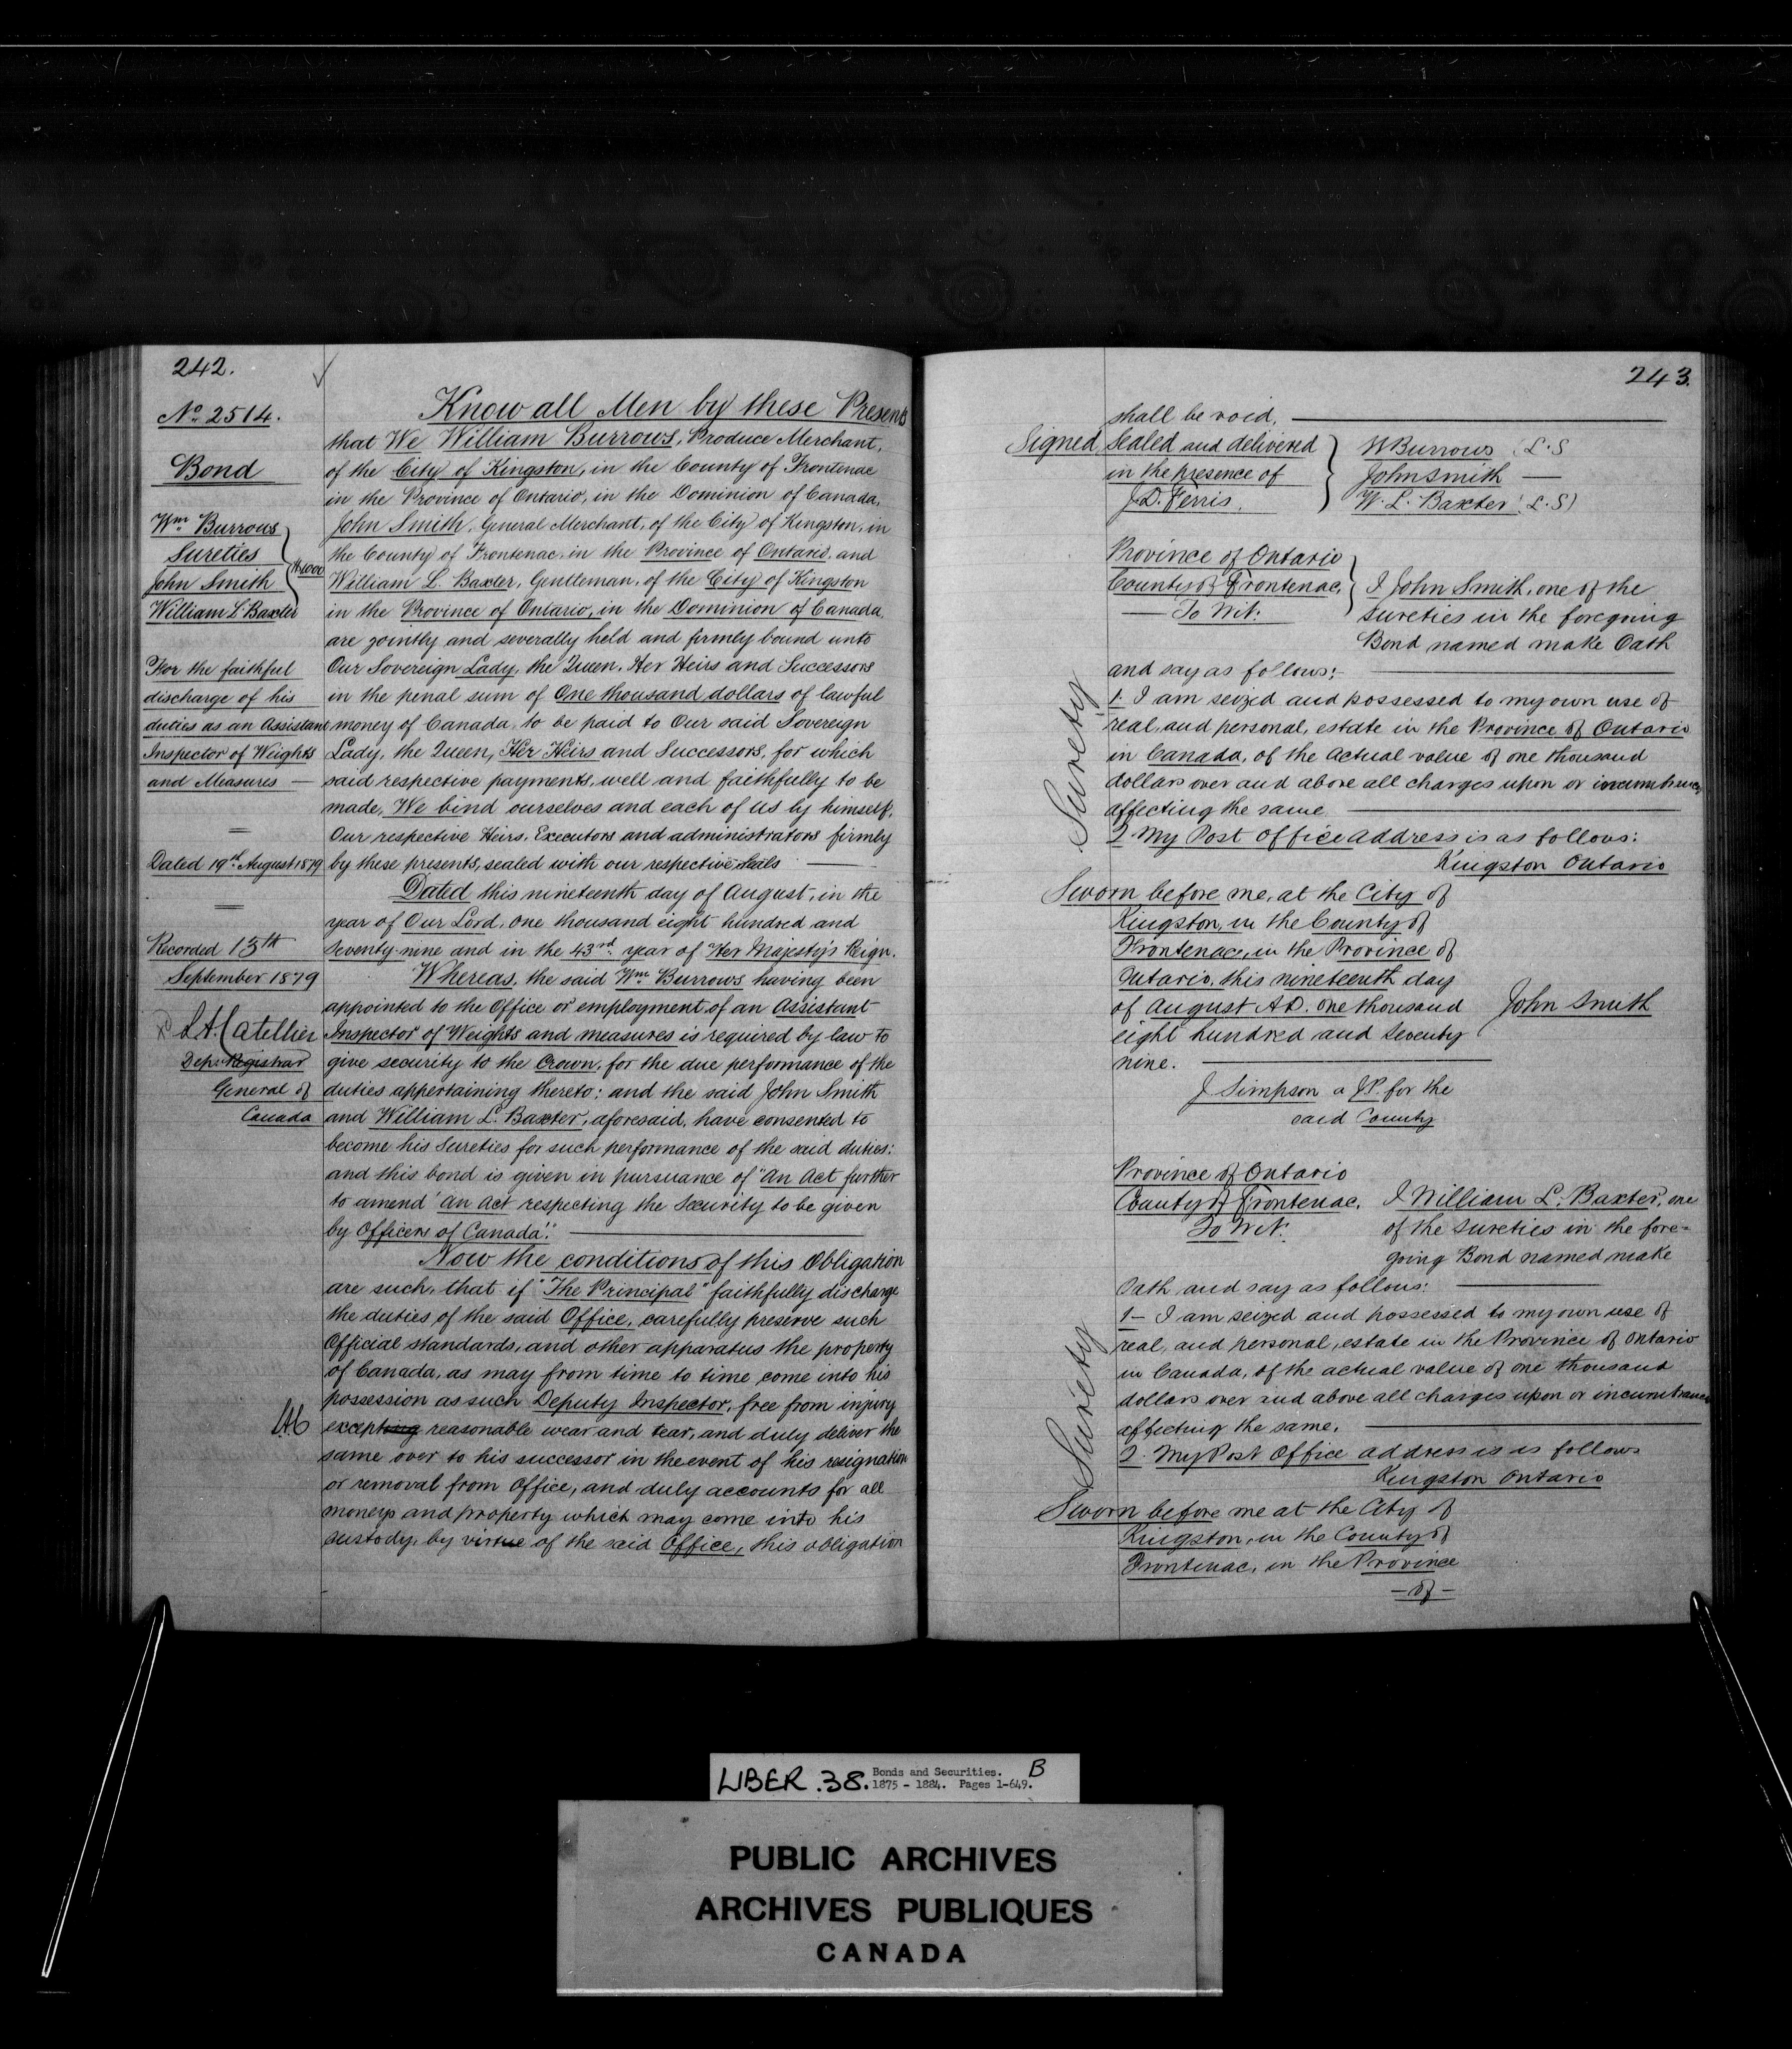 242.
No. 2514.
Bond
Wm Burrows
Sureties
John Smith
William L Baxter
$1000
For the faithful
discharge of his
duties as an Assistant
Inspector of Weights
and Measures —
Dated 19th August 1879
Recorded 13th
September 1879
L.A. Catellier
Depy Registrar
General of
Canada
Know all Men by these Presents
that We William Burrows, Produce Merchant,
of the City of Kingston, in the County of Frontenac
in the Province of Ontario, in the Dominion of Canada,
John Smith, General Merchant, of the City of Kingston, in
the County of Frontenac, in the Province of Ontario, and
William L. Baxter, Gentleman, of the City of Kingston
in the Province of Ontario, in the Dominion of Canada,
are jointly and severally held and firmly bound unto
Our Sovereign Lady, the Queen, Her Heirs and Successors
in the penal sum of One thousand dollars of lawful
money of Canada, to be paid to Our said Sovereign
Lady, the Queen, Her Heirs and Successors, for which
said respective payments, well and faithfully to be
made, We bind ourselves and each of us by himself,
Our respective Heirs, Executors and administrators firmly
by these presents, sealed with our respective Seals —
Dated this nineteenth day of August, in the
year of Our Lord, one thousand eight hundred and
seventy-nine and in the 43rd year of Her Majesty's Reign.
Whereas, the said Wm Burrows having been
appointed to the Office or employment of an Assistant
Inspector of Weights and measures is required by law to
give security to the Crown, for the due performance of the
duties appertaining thereto: and the said John Smith
and William L. Baxter, aforesaid, have consented to
become his Sureties for such performance of the said duties:
and this bond is given in pursuance of "An Act further
to amend 'An Act respecting the Security to be given
by Officers of Canada'." —
Now the conditions of this Obligation
are such, that if "The Principal" faithfully discharge
the duties of the said Office, carefully preserve such
Official standards, and other apparatus the property
of Canada, as may from time to time come into his
possession as such Deputy Inspector, free from injury
excepting reasonable wear and tear, and duly deliver the
same over to his successor in the event of his resignation
or removal from Office, and duly accounts for all
moneys and property which may come into his
custody, by virtue of the said Office, this obligation
243.
shall be void. —
Signed, Sealed and delivered
in the presence of
J.D. Ferris.
W Burrows (L.S
John Smith —
W. L. Baxter (L.S)
Province of Ontario
County of Frontenac,
To Wit:
I John Smith, one of the
Sureties in the foregoing
Bond named make Oath
and say as follows: —
1. I am seized and possessed to my own use of
real, and personal, estate in the Province of Ontario
in Canada, of the Actual value of one thousand
dollars over and above all charges upon or incumbrances
affecting the same —
2. My Post Office address is as follows:
Kingston Ontario
Surety
Sworn before me, at the City of
Kingston, in the County of
Frontenac, in the Province of
Ontario, this nineteenth day
of August A.D. one thousand
eight hundred and seventy
nine. —
John Smith
J Simpson a J.P. for the
said County
Province of Ontario
County of Frontenac,
To Wit:
I William L. Baxter, one
of the sureties in the fore=
going Bond named make
Oath and say as follows: —
1— I am seized and possessed to my own use of
real, and personal, estate in the Province of Ontario
in Canada, of the actual value of one thousand
dollars over and above all charges upon or incumbrances
affecting the same. —
2. My Post Office address is as follows
Kingston Ontario
Surety
Sworn before me at the City of
Kingston, in the County of
Frontenac, in the Province
— of —
LIBER .38. Bonds and Securities. B
1875 - 1884. Pages 1-649.
PUBLIC ARCHIVES
ARCHIVES PUBLIQUES
CANADA